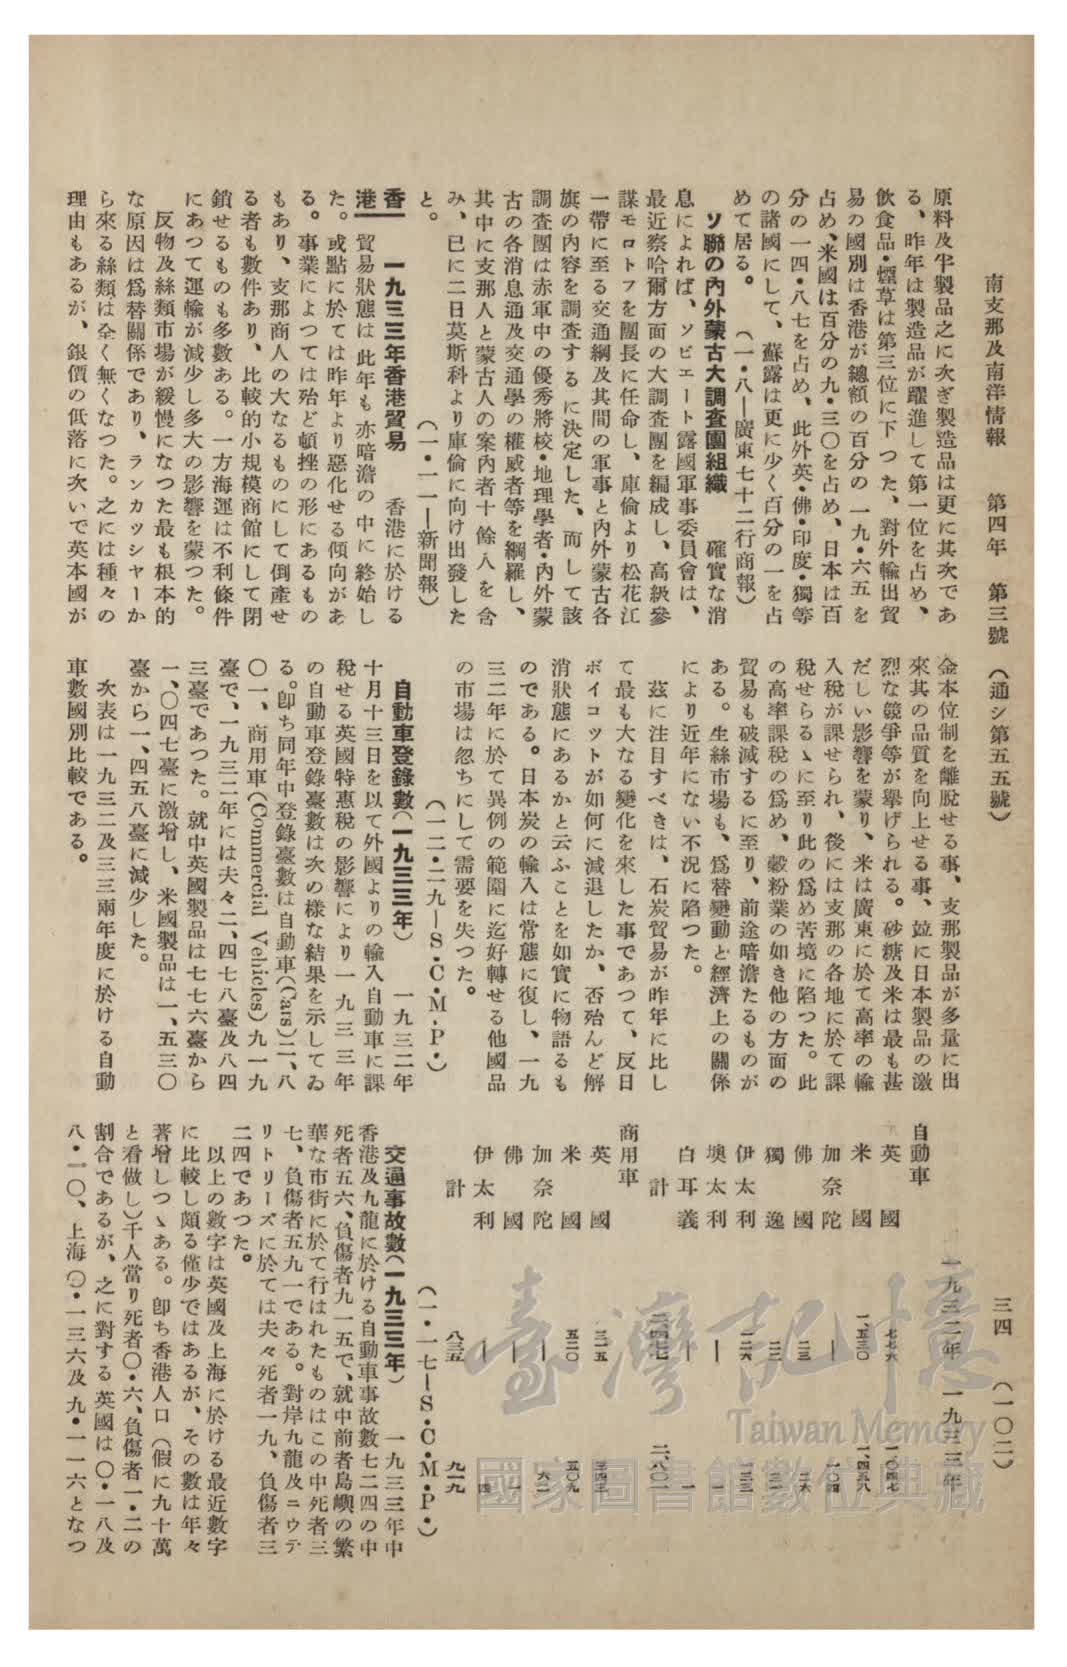 南支那及南洋情報　第四年　第三號　（通シ第五五號）　三四　（一〇二）
原料及半製品之に次ぎ製造品は更に其次であ
る、昨年は製造品が躍進して第一位を占め、
飲食品・煙草は第三位に下つた、對外輸出貿
易の國別は香港が總額の百分の一九・六五を
占め、米國は百分の九・三〇を占め、日本は百
分の一四・八七を占め、此外英・佛・印度・獨等
の諸國にして、蘇露は更に少く百分の一を占
めて居る。　（一・八―廣東七十二行商報）
ソ聯の內外蒙古大調査團組織　確實な消
息によれば、ソビエート露國軍事委員會は、
最近察哈爾方面の大調査團を編成し、高級參
謀モロトフを團長に任命し、庫倫より松花江
一帶に至る交通綱及其間の軍事と內外蒙古各
旗の內容を調査するに決定した、而して該
調査團は赤軍中の優秀將校・地理學者・內外蒙
古の各消息通及交通學の權威者等を綱羅し、
其中に支那人と蒙古人の案內者十餘人を含
み、已に二日莫斯科より庫倫に向け出發した
と。　（一・一一―新聞報）
香港　一九三三年香港貿易　香港に於ける
貿易狀態は此年も亦暗澹の中に終始し
た。或點に於ては昨年より惡化せる傾向があ
る。事業によつては殆ど頓挫の形にあるもの
もあり、支那商人の大なるものにして倒產せ
る者も數件あり、比較的小規模商館にして閉
鎖せるものも多數ある。一方海運は不利條件
にあつて運輸が減少し多大の影響を蒙つた。
反物及絲類市場が緩慢になつた最も根本的
な原因は爲替關係であり、ランカッシヤーか
ら來る絲類は全く無くなつた。之には種々の
理由もあるが、銀價の低落に次いで英本國が
金本位制を離脫せる事、支那製品が多量に出
來其の品質を向上せる事、竝に日本製品の激
烈な競爭等が擧げられる。砂糖及米は最も甚
だしい影響を蒙り、米は廣東に於て高率の輸
入稅が課せられ、後には支那の各地に於て課
稅せらるゝに至り此の爲め苦境に陷つた。此
の高率課稅の爲め、穀粉業の如き他の方面の
貿易も破滅するに至り、前途暗澹たるものが
ある。生絲市場も、爲替變動と經濟上の關係
により近年にない不況に陷つた。
茲に注目すべきは、石炭貿易が昨年に比し
て最も大なる變化を來した事であつて、反日
ボイコットが如何に減退したか、否殆んど解
消狀態にあるかと云ふことを如實に物語るも
のである。日本炭の輸入は常態に復し、一九
三二年に於て異例の範圍に迄好轉せる他國品
の市場は忽ちにして需要を失つた。
（一二・二九―S・C・M・P・）
自動車登錄數（一九三三年）　一九三二年
十月十三日を以て外國よりの輸入自動車に課
稅せる英國特惠稅の影響により一九三三年
の自動車登錄臺數は次の樣な結果を示してゐ
る。卽ち同年中登錄臺數は自動車（Cars）二、八
〇一、商用車（Commercial Vehicles）九一九
臺で、一九三二年には夫々二、四七八臺及八四
三臺であつた。就中英國製品は七七六臺から
一、〇四七臺に激增し、米國製品は一、五三〇
臺から一、四五八臺に減少した。
次表は一九三二及三三兩年度に於ける自動
車數國別比較である。
一九三二年　一九三三年
自動車
英國　七七六　一・〇四七
米國　一、五三〇　一・四五八
加奈陀　―　一〇四
佛國　二三　二六
獨逸　二三　三一
伊太利　一二六　一三三
墺太利　―　一
白耳義　―　一
計　二、四七七　二、八〇一
商用車
英國　三一五　三四三
米國　五二〇　五〇九
加奈陀　―　六二
佛國　―　一
伊太利　―　四
計　八三五　九一九
（一・一七―S・C・M・P・）
交通事故數（一九三三年）　一九三三年中
香港及九龍に於ける自動車事故數七二四の中
死者五六、負傷者九一五で、就中前者島嶼の繁
華な市街に於て行はれたものはこの中死者三
七、負傷者五九一である。對岸九龍及ニウテ
リトリーズに於ては夫々死者一九、負傷者三
二四であつた。
以上の數字は英國及上海に於ける最近數字
に比較し頗る僅少ではあるが、その數は年々
著增しつゝある。卽ち香港人口（假に九十萬
と看做し）千人當り死者〇・六、負傷者一・二の
割合であるが、之に對する英國は〇・一八及
八・一〇、上海〇・一三六及九・一一六となつ
臺灣記憶
Taiwan Memory
國家圖書館數位典藏